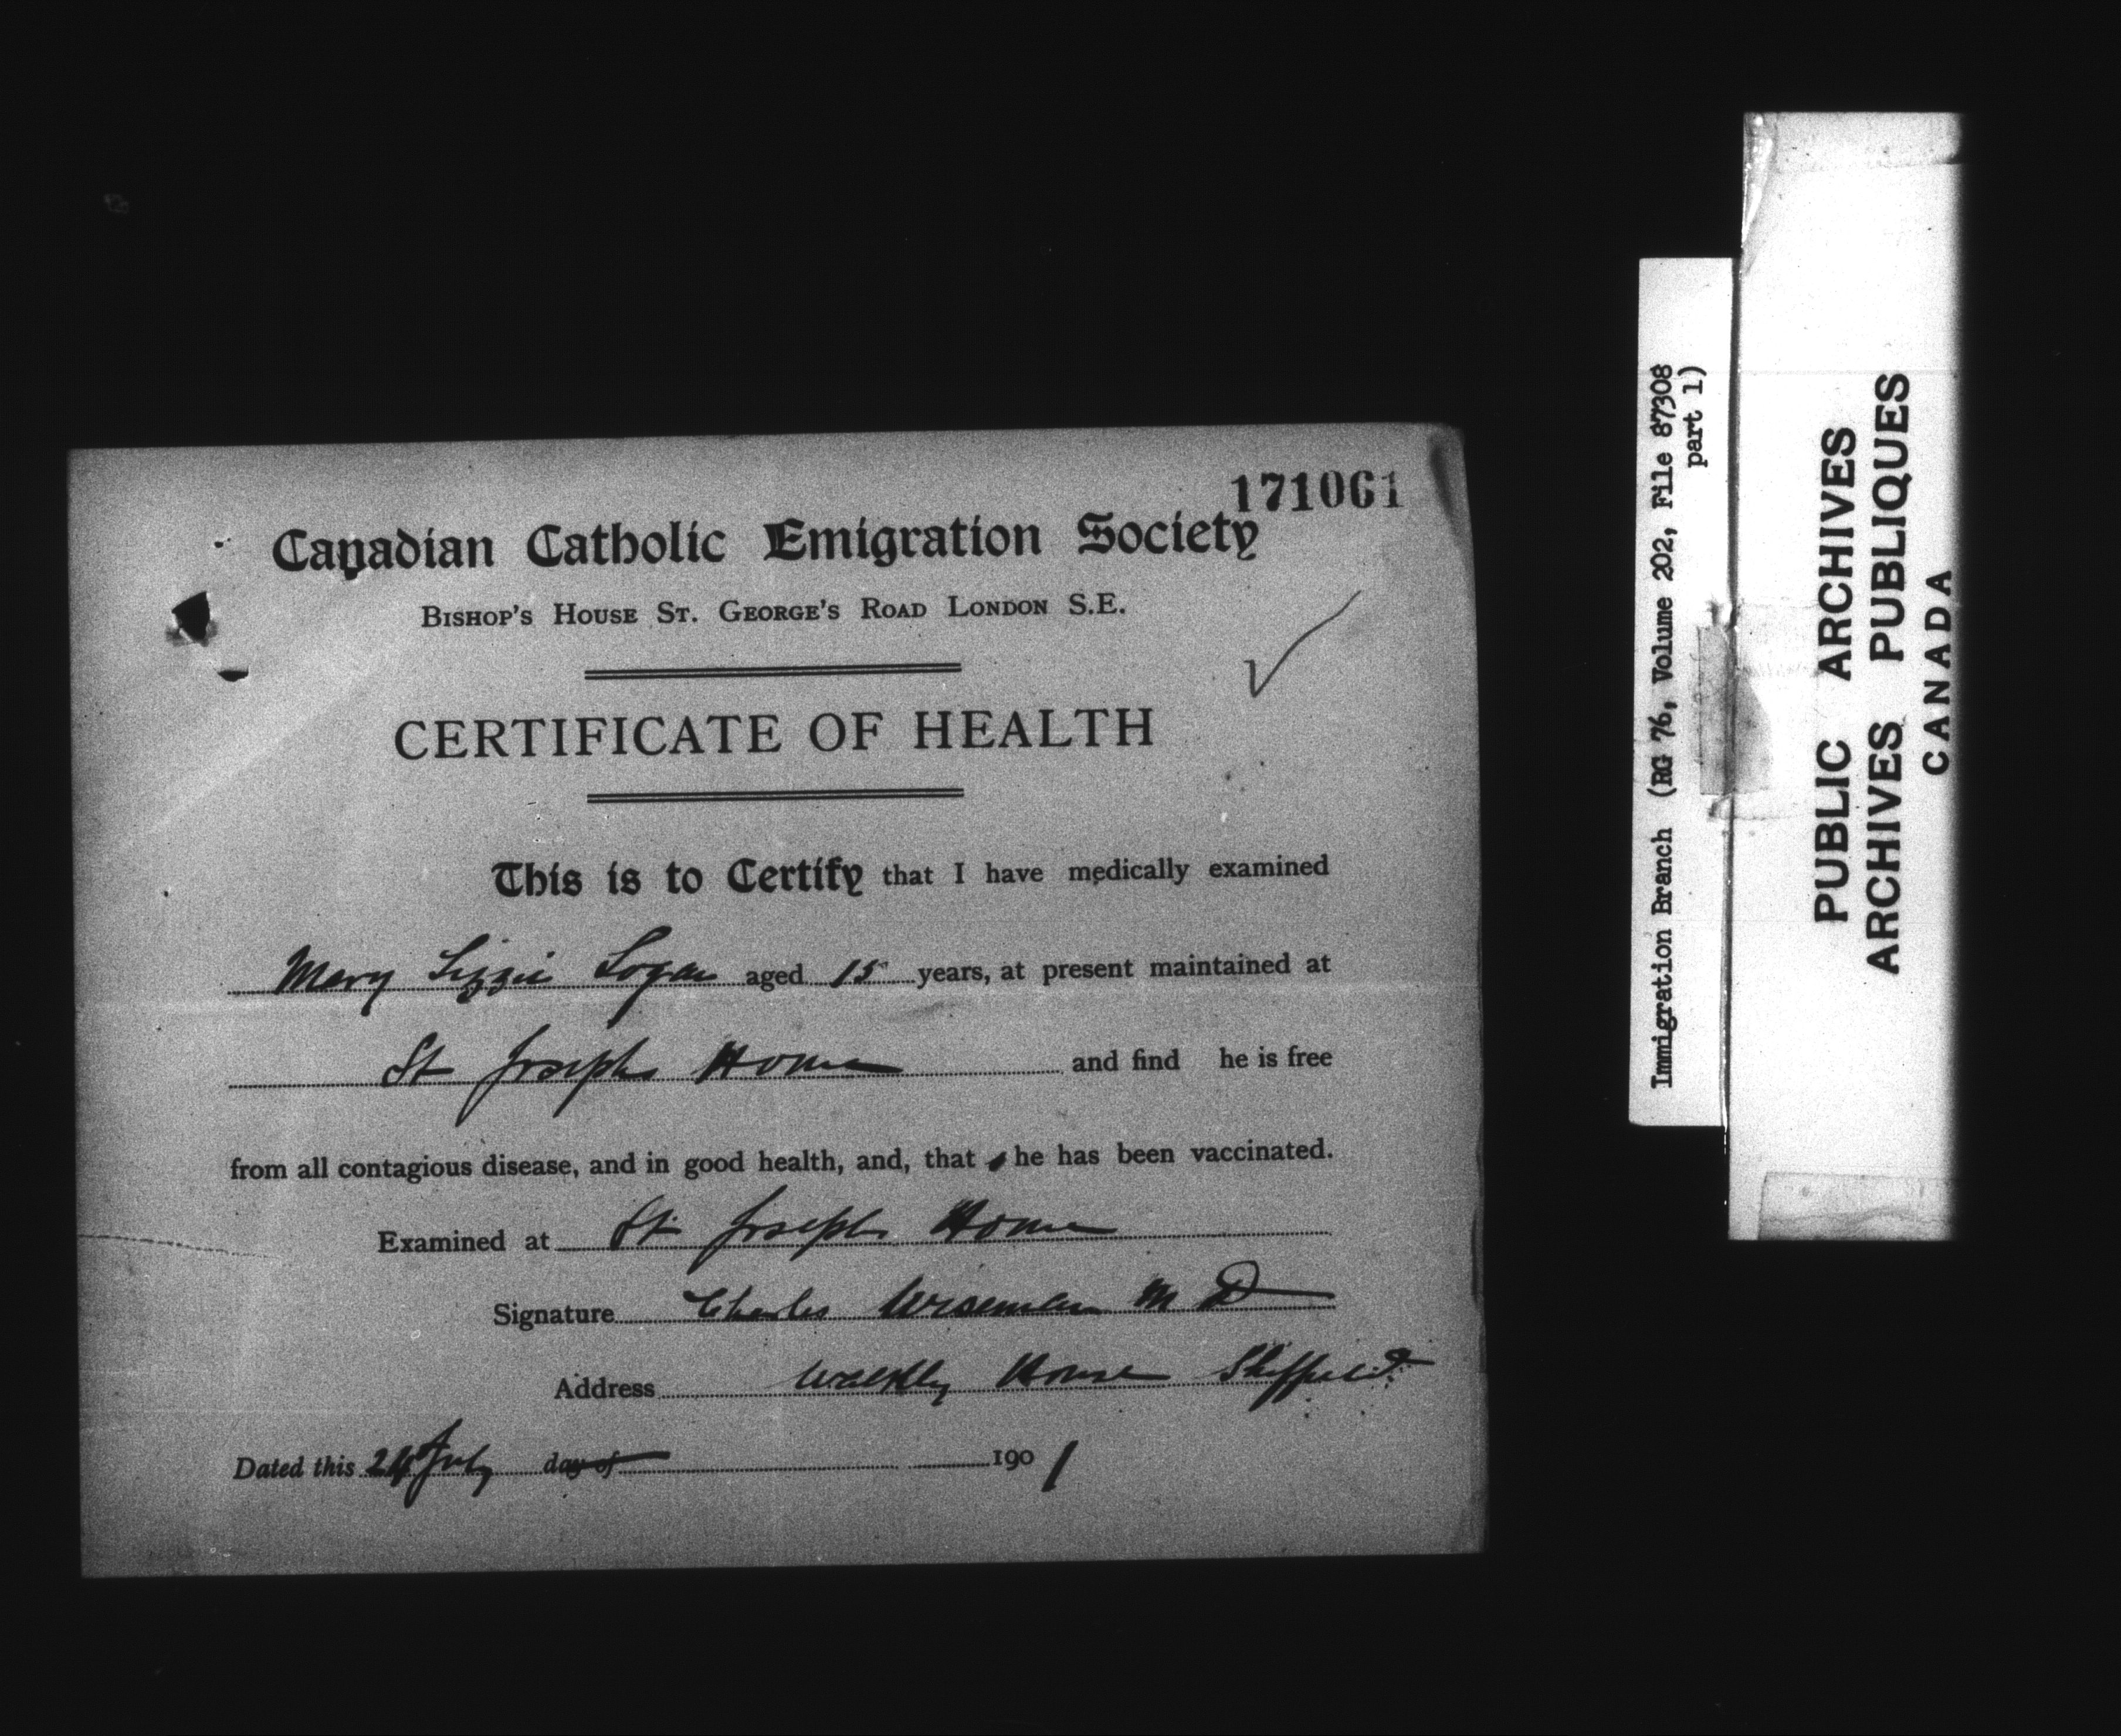 171061
Canadian Catholic Emigration Society
Bishop's House St. George's Road London S.E.
CERTIFICATE OF HEALTH
This is to Certify that I have medically examined
Mary Lizzie Logan aged 15 years, at present maintained at
St Josephs Home and find he is free
from all contagious disease, and in good health, and, that s he has been vaccinated.
Examined at St Josephs Home
Signature Charles Wiseman M D
Address Walkley House Sheffield
Dated this 24 July day of 190 1
Immigration Branch (RG 76, Volume 202, File 87308
part 1)
PUBLIC ARCHIVES
ARCHIVES PUBLIQUES
CANADA